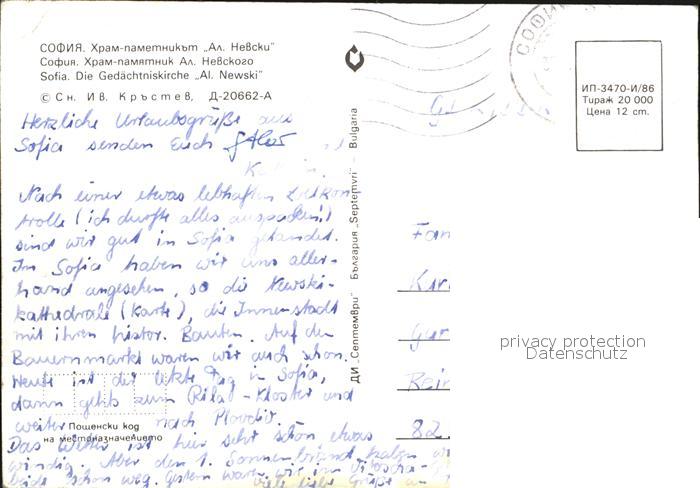 СОФИЯ. Храм-паметникът „Ал. Невски"
София. Храм-памятник Ал. Невского
Sofia. Die Gedächtniskirche „Al. Newski"
© Сн. Ив. Кръстев, Д-20662-А
Herzliche Urlaubsgrüße aus
Sofia senden Euch
Nach einer etwas lebhaften Zollkon
trolle (ich durfte alles auspacken!)
sind wir gut in Sofia gelandet.
In Sofia haben wir uns aller-
hand angesehen, so die Newski-
kathedrale (Karte), die Innenstadt
mit ihren histor. Bauten. Auf dem
Bauernmarkt waren wir auch schon.
Heute ist der letzte Tag in Sofia,
dann gehts zum Rila-Kloster und
weiter nach Plovdiv.
Das Wetter ist hier sehr schön, etwas
windig. Aber den 1. Sonnenbrand haben wir
beide schon weg. Gestern waren wir im Vitoscha-
viele liebe Grüße
Пощенски код
на местоназначението
ДИ „Септември" България „Septemvri" - Bulgaria
СОФИЯ
ИП-3470-И/86
Тираж 20 000
Цена 12 ст.
Fam
Karl
Rein
82
privacy protection
Datenschutz